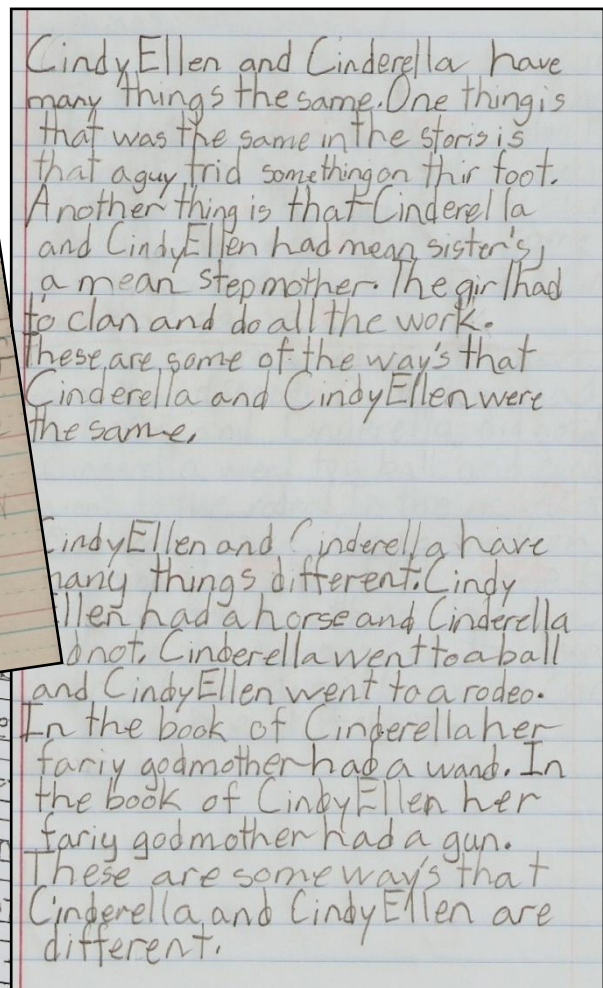 Cindy Ellen and Cinderella have
many things the same. One thing is
that was the same in the storis is
that a guy trid something on thir foot.
Another thing is that Cinderella
and Cindy Ellen had mean sister's,
a mean stepmother. The girl had
to clan and do all the work.
These are some of the way's that
Cinderella and Cindy Ellen were
the same.
Cindy Ellen and Cinderella have
many things different. Cindy
Ellen had a horse and Cinderella
not. Cinderella went to a ball
and Cindy Ellen went to a rodeo.
In the book of Cinderella her
fariy godmother had a wand. In
the book of Cindy Ellen her
fariy godmother had a gun.
These are some way's that
Cinderella and Cindy Ellen are
different.